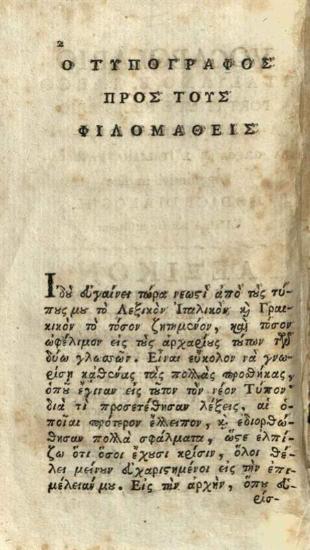 2
Ο ΤΥΠΟΓΡΑΦΟΣ
ΠΡΟΣ ΤΟΥΣ
ΦΙΛΟΜΑΘΕΙΣ
Ἰδȣ̀ ἐυγαίνει τώρα νεωςὶ ἀπὸ τȣ̀ς τύ-
πȣς μȣ τὸ Λεξικὸν Ἰταλικὸν, ϗ̀ Γραι-
κικὸν τὸ τόσον ζητημένον, καὶ τόσον
ὠφέλιμον εἰς τȣ̀ς ἀρχαρίȣς τȣ́των τῶν
δύω γλωσσῶν. Εἶναι ἔυκολον νὰ γνω-
ρίσῃ καθένας τὰς πολλὰς προθήκας,
ὁπȣ̂ ἔγιναν εἰς τȣ̂τον τὸν νέον Τύπον
διὰ τὶ προσετέθησαν λέξεις, αἱ ὁ-
ποῖαι πρότερον ἔλλειπον, ϗ̀ ἐδιορθώ-
θησαν πολλὰ σφάλματα, ὥςε ἐλπί-
ζω ὅτι ὅσοι ἔχȣσι κρίσιν, ὅλοι θέ-
λει μείνȣν ἐυχαριςημένοι εἰς τὴν ἐπι-
μέλειάν μȣ. Εἰς τὴν ἀρχὴν, ὅπȣ ἐυ-
ρίσ-